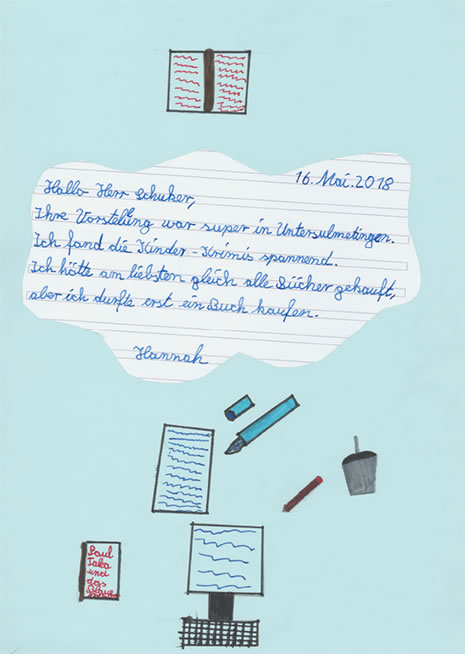 16. Mai. 2018
Hallo Herr Schuker,
Ihre Vorstellung war super in Untersulmetingen.
Ich fand die Kinder-Krimis spannend.
Ich hätte am liebsten gleich alle Bücher gekauft,
aber ich durfte erst ein Buch kaufen.
Hannah
Paul
und
das